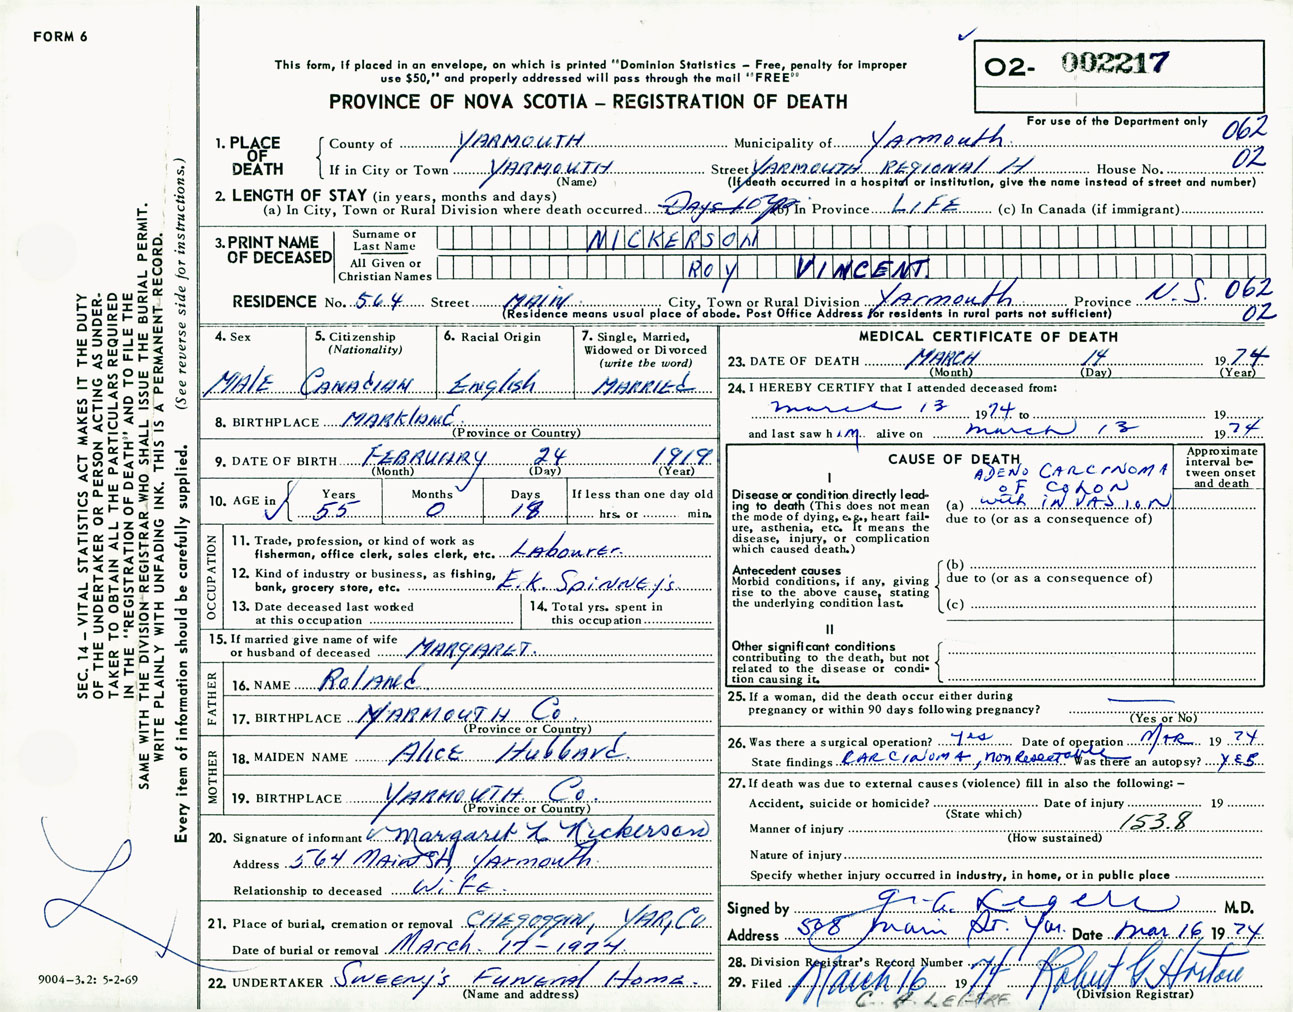 FORM 6
This form, if placed in an envelope, on which is printed "Dominion Statistics – Free, penalty for improper
use $50," and properly addressed will pass through the mail "FREE"
PROVINCE OF NOVA SCOTIA – REGISTRATION OF DEATH
02- 002217
For use of the Department only
062
02
1. PLACE OF DEATH
County of YARMOUTH Municipality of Yarmouth
If in City or Town YARMOUTH Street YARMOUTH REGIONAL H House No.
(Name) (If death occurred in a hospital or institution, give the name instead of street and number)
2. LENGTH OF STAY (in years, months and days)
(a) In City, Town or Rural Division where death occurred Days (b) In Province LIFE (c) In Canada (if immigrant)
3. PRINT NAME OF DECEASED
Surname or Last Name NICKERSON
All Given or Christian Names ROY VINCENT.
RESIDENCE No. 564 Street MAIN City, Town or Rural Division Yarmouth Province N.S. 062
(Residence means usual place of abode. Post Office Address for residents in rural parts not sufficient) 02
4. Sex
MALE
5. Citizenship
(Nationality)
CANADIAN
6. Racial Origin
English
7. Single, Married,
Widowed or Divorced
(write the word)
MARRIED
8. BIRTHPLACE MARKLAND.
(Province or Country)
9. DATE OF BIRTH FEBRUARY 24 1919
(Month) (Day) (Year)
10. AGE in Years 55 Months 0 Days 18 If less than one day old
hrs. or min.
OCCUPATION
11. Trade, profession, or kind of work as
fisherman, office clerk, sales clerk, etc. Labourer.
12. Kind of industry or business, as fishing,
bank, grocery store, etc. E.K. Spinney's
13. Date deceased last worked
at this occupation
14. Total yrs. spent in
this occupation
15. If married give name of wife
or husband of deceased MARGARET.
FATHER
16. NAME Roland
17. BIRTHPLACE YARMOUTH Co.
(Province or Country)
MOTHER
18. MAIDEN NAME Alice Hubbard.
19. BIRTHPLACE YARMOUTH Co.
(Province or Country)
20. Signature of informant Margaret L Nickerson
Address 564 Main St, Yarmouth
Relationship to deceased Wife.
21. Place of burial, cremation or removal CHEGOGGIN, YAR, Co
Date of burial or removal March. 17-1974
22. UNDERTAKER Sweeny's Funeral Home.
(Name and address)
MEDICAL CERTIFICATE OF DEATH
23. DATE OF DEATH MARCH 14 1974
(Month) (Day) (Year)
24. I HEREBY CERTIFY that I attended deceased from:
March 13 1974 to 19
and last saw him alive on March 13 1974
CAUSE OF DEATH
Approximate
interval be-
tween onset
and death
I
Disease or condition directly lead-
ing to death (This does not mean
the mode of dying, e.g., heart fail-
ure, asthenia, etc. It means the
disease, injury, or complication
which caused death.)
ADENO CARCINOMA
OF COLON
(a) with INVASION
due to (or as a consequence of)
Antecedent causes
Morbid conditions, if any, giving
rise to the above cause, stating
the underlying condition last.
(b)
due to (or as a consequence of)
(c)
II
Other significant conditions
contributing to the death, but not
related to the disease or condi-
tion causing it.
25. If a woman, did the death occur either during
pregnancy or within 90 days following pregnancy?
(Yes or No)
26. Was there a surgical operation? yes Date of operation MAR 1974
State findings CARCINOMA, nonresectable Was there an autopsy? YES
27. If death was due to external causes (violence) fill in also the following: –
Accident, suicide or homicide? Date of injury 19
(State which)
Manner of injury 153.8
(How sustained)
Nature of injury
Specify whether injury occurred in industry, in home, or in public place
Signed by M.D.
Address 508 Main St. Yar. Date Mar 16 1974
28. Division Registrar's Record Number
29. Filed March 16 1974 Robert G Horton
(Division Registrar)
SEC. 14 – VITAL STATISTICS ACT MAKES IT THE DUTY
OF THE UNDERTAKER OR PERSON ACTING AS UNDER-
TAKER TO OBTAIN ALL THE PARTICULARS REQUIRED
IN THE "REGISTRATION OF DEATH" AND TO FILE THE
SAME WITH THE DIVISION REGISTRAR WHO SHALL ISSUE THE BURIAL PERMIT.
WRITE PLAINLY WITH UNFADING INK. THIS IS A PERMANENT RECORD.
Every item of information should be carefully supplied. (See reverse side for instructions.)
9004-3.2: 5-2-69